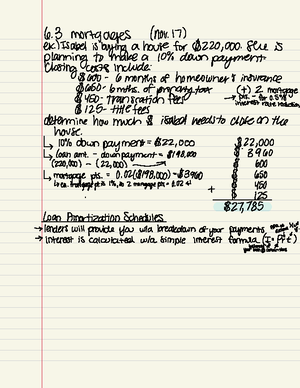 6.3 mortgages (nov. 17)
ex) Isabel is buying a house for $220,000. She is
planning to make a 10% down payment.
Closing costs include:
$600 - 6 months of homeowner's insurance
$650 - 6 mths. of property tax
$450 - transaction fees
$125 - title fees
(+) 2 mortgage
pts. - for 0.5%
interest rate reduction
determine how much $ isabel needs to close on the
house.
↳ 10% down payment = $22,000
↳ loan amt. - down payment = $198,000
(220,000) - (22,000)
↳ mortgage pts. = 0.02($198,000) = $3960
mortgage pt. is 1%, so 2 mortgage pts = 0.02
$22,000
$ 3960
$ 600
$ 650
$ 450
+ $ 125
$27,785
Loan Amortization Schedules
→ lenders will provide you w/a breakdown of your payments
→ interest is calculated w/a simple interest formula (I = Prt)